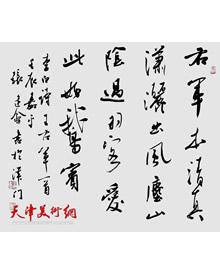 右軍本清真
瀟灑出風塵山
陰過羽客愛
此好鵝賓
李白詩王右軍一首
壬辰
張建會書於津門
天津美術網